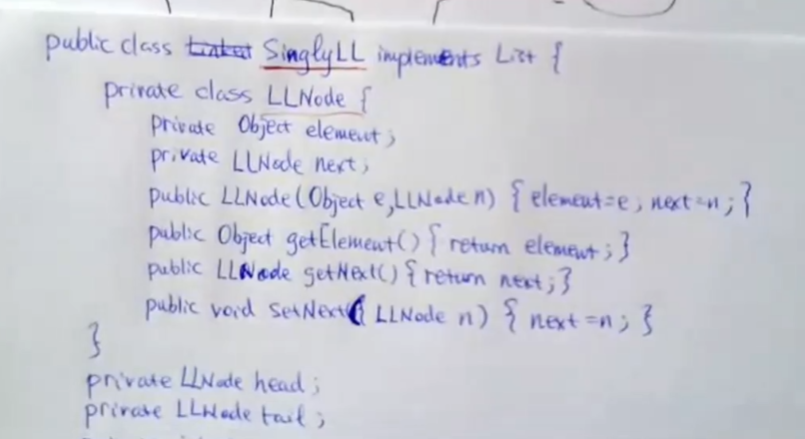 public class SinglyLL implements List {
private class LLNode {
private Object element;
private LLNode next;
public LLNode(Object e, LLNode n) { element=e; next=n; }
public Object getElement() { return element; }
public LLNode getNext() { return next; }
public void setNext( LLNode n) { next=n; }
}
private LLNode head;
private LLNode tail;